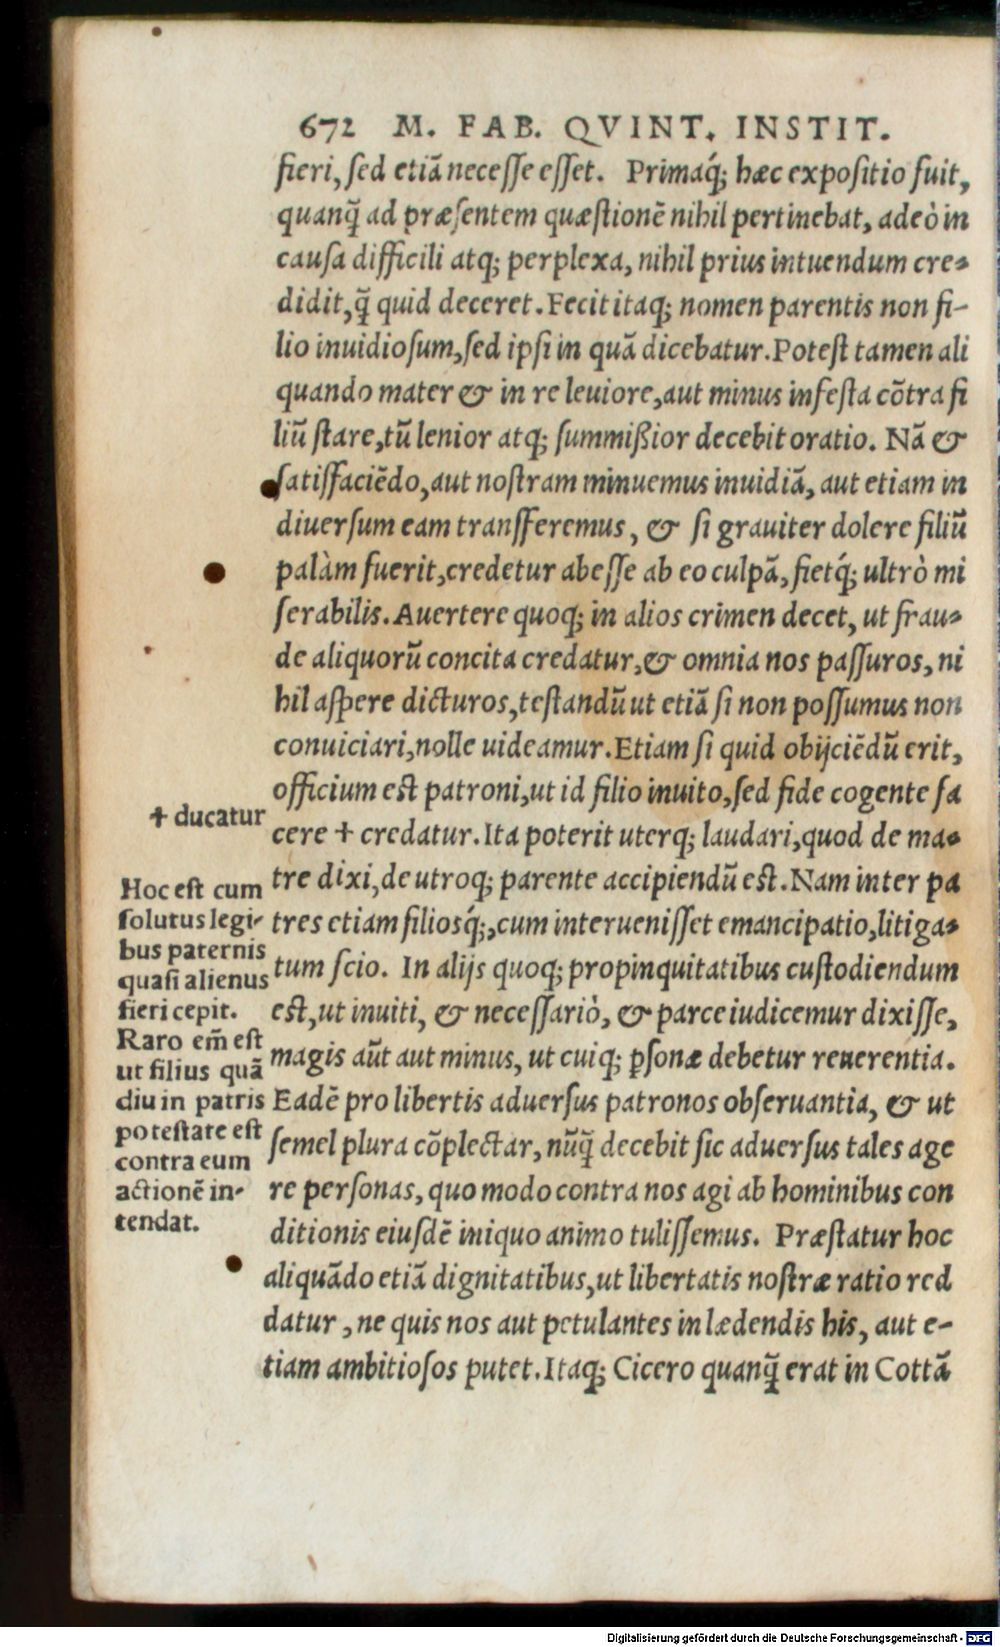 672 M. FAB. QVINT. INSTIT.
fieri, ſed etiã neceſſe eſſet. Primaq́; hæc expoſitio fuit,
quanq̃ ad præſentem quæſtionẽ nihil pertinebat, adeò in
cauſa difficili atq; perplexa, nihil prius intuendum cre-
didit, q̃ quid deceret. Fecit itaq; nomen parentis non fi-
lio inuidioſum, ſed ipſi in quã dicebatur. Poteſt tamen ali
quando mater & in re leuiore, aut minus infeſta cõtra fi
liũ ſtare, tũ lenior atq; ſummißior decebit oratio. Nã &
ſatiſfaciẽdo, aut noſtram minuemus inuidiã, aut etiam in
diuerſum eam tranſferemus, & ſi grauiter dolere filiũ
palàm fuerit, credetur abeſſe ab eo culpã, fietq́; ultrò mi
ſerabilis. Auertere quoq; in alios crimen decet, ut frau-
de aliquorũ concita credatur, & omnia nos paſſuros, ni
hil aſpere dicturos, teſtandũ ut etiã ſi non poſſumus non
conuiciari, nolle uideamur. Etiam ſi quid obijciẽdũ erit,
officium eſt patroni, ut id filio inuito, ſed fide cogente fa
cere + credatur. Ita poterit uterq; laudari, quod de ma-
tre dixi, de utroq; parente accipiendũ eſt. Nam inter pa
tres etiam filiosq́;, cum interueniſſet emancipatio, litiga-
tum ſcio. In alijs quoq; propinquitatibus cuſtodiendum
eſt, ut inuiti, & neceſſariò, & parce iudicemur dixiſſe,
magis aũt aut minus, ut cuiq; ꝑſonæ debetur reuerentia.
Eadẽ pro libertis aduerſus patronos obſeruantia, & ut
ſemel plura cõplectar, nũq̃ decebit ſic aduerſus tales age
re perſonas, quo modo contra nos agi ab hominibus con
ditionis eiuſdẽ iniquo animo tuliſſemus. Præſtatur hoc
aliquãdo etiã dignitatibus, ut libertatis noſtræ ratio red
datur, ne quis nos aut petulantes in lædendis his, aut e-
tiam ambitioſos putet. Itaq; Cicero quanq̃ erat in Cottã
+ ducatur
Hoc eſt cum
ſolutus legi-
bus paternis
quaſi alienus
fieri cepit.
Raro em̃ eſt
ut filius quã
diu in patris
poteſtate eſt
contra eum
actionẽ in-
tendat.
Digitalisierung gefördert durch die Deutsche Forschungsgemeinschaft - DFG